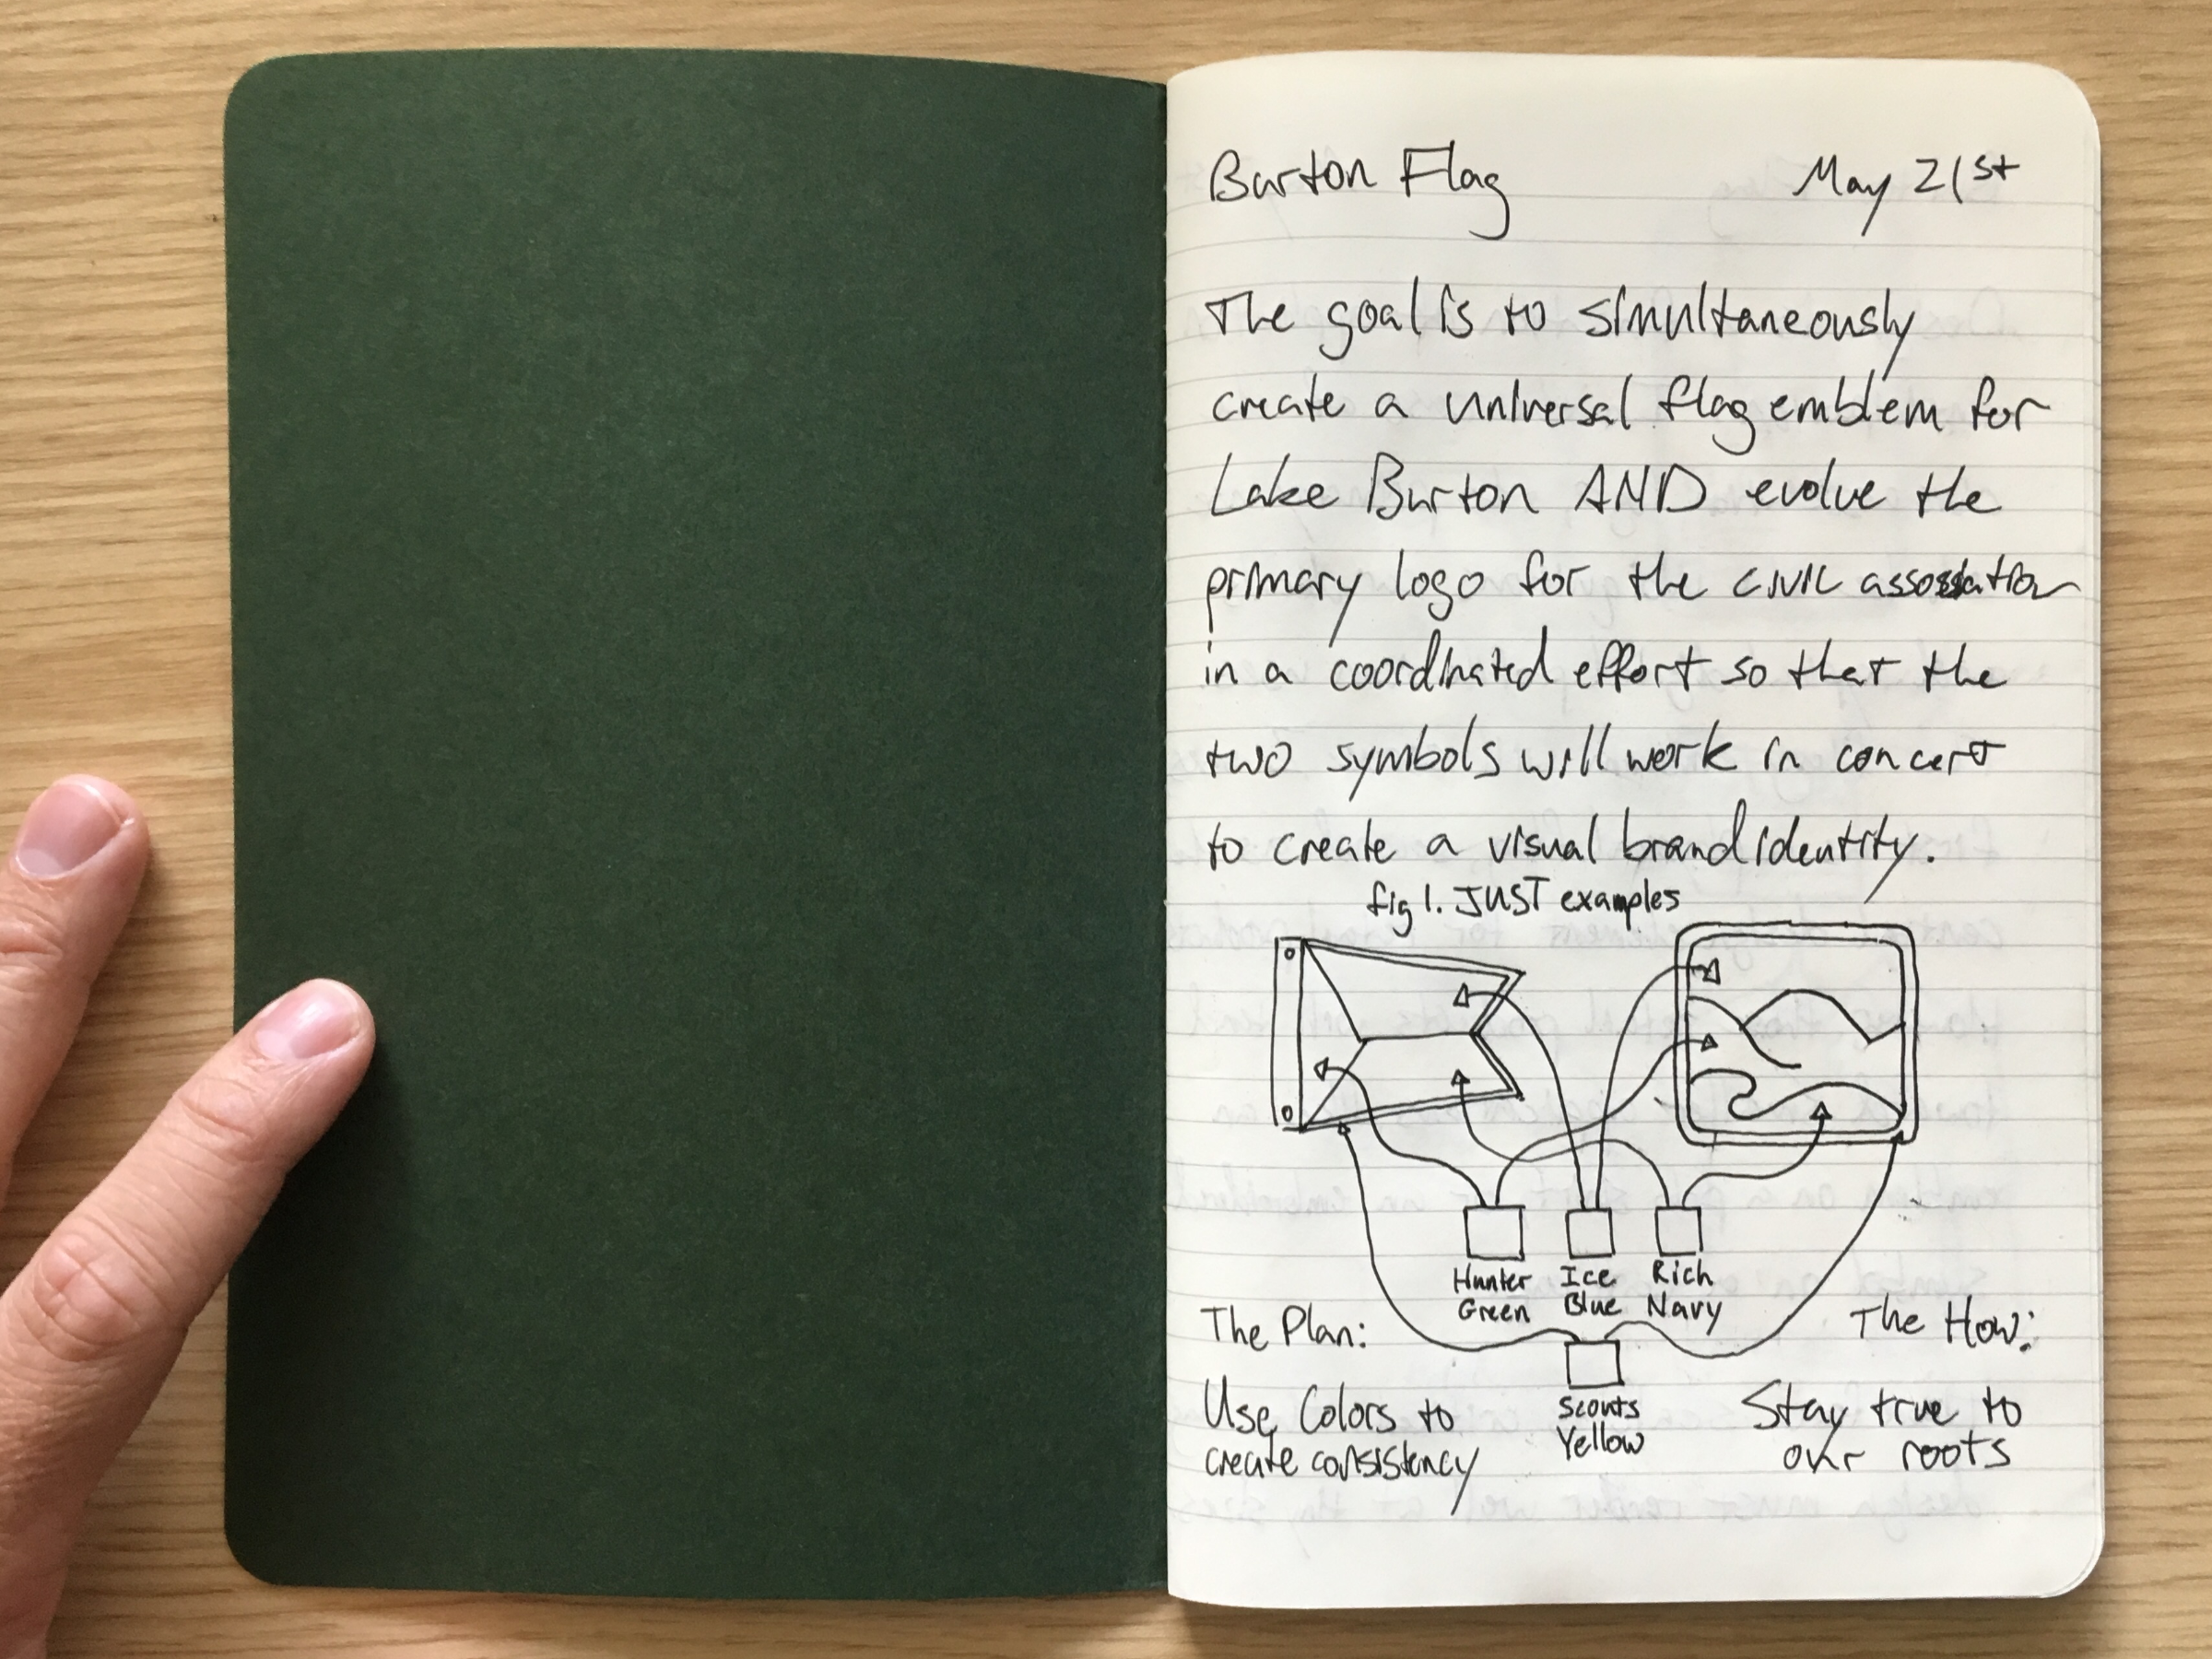 Burton Flag May 21st
The goal is to simultaneously
create a universal flag emblem for
Lake Burton AND evolve the
primary logo for the civic association
in a coordinated effort so that the
two symbols will work in concert
to create a visual brand identity.
fig 1. JUST examples
Hunter Green
Ice Blue
Rich Navy
Scouts Yellow
The Plan:
Use Colors to
create consistency
The How:
Stay true to
our roots